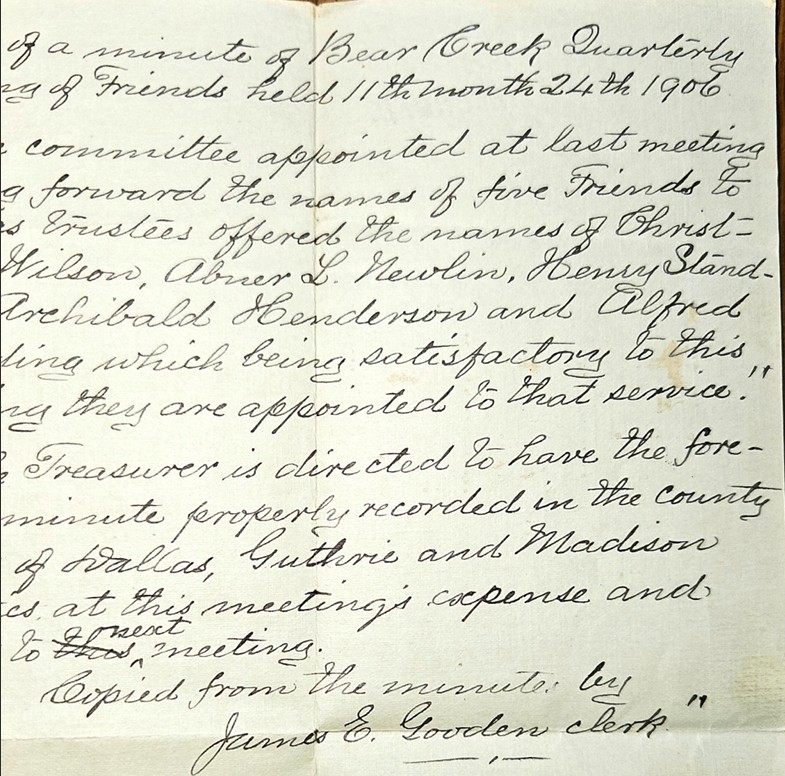 of a minute of Bear Creek Quarterly
ng of Friends held 11th month 24th 1906
committee appointed at last meeting
g forward the names of five Friends to
es trustees offered the names of Christ=
Wilson, Abner L. Newlin, Henry Stand-
Archibald Henderson and Alfred
ding which being satisfactory to this
ng they are appointed to that service."
Treasurer is directed to have the fore-
minute properly recorded in the county
of Dallas, Guthrie and Madison
es, at this meeting's expense and
to this next meeting.
Copied from the minute. by
James E. Gooden clerk."